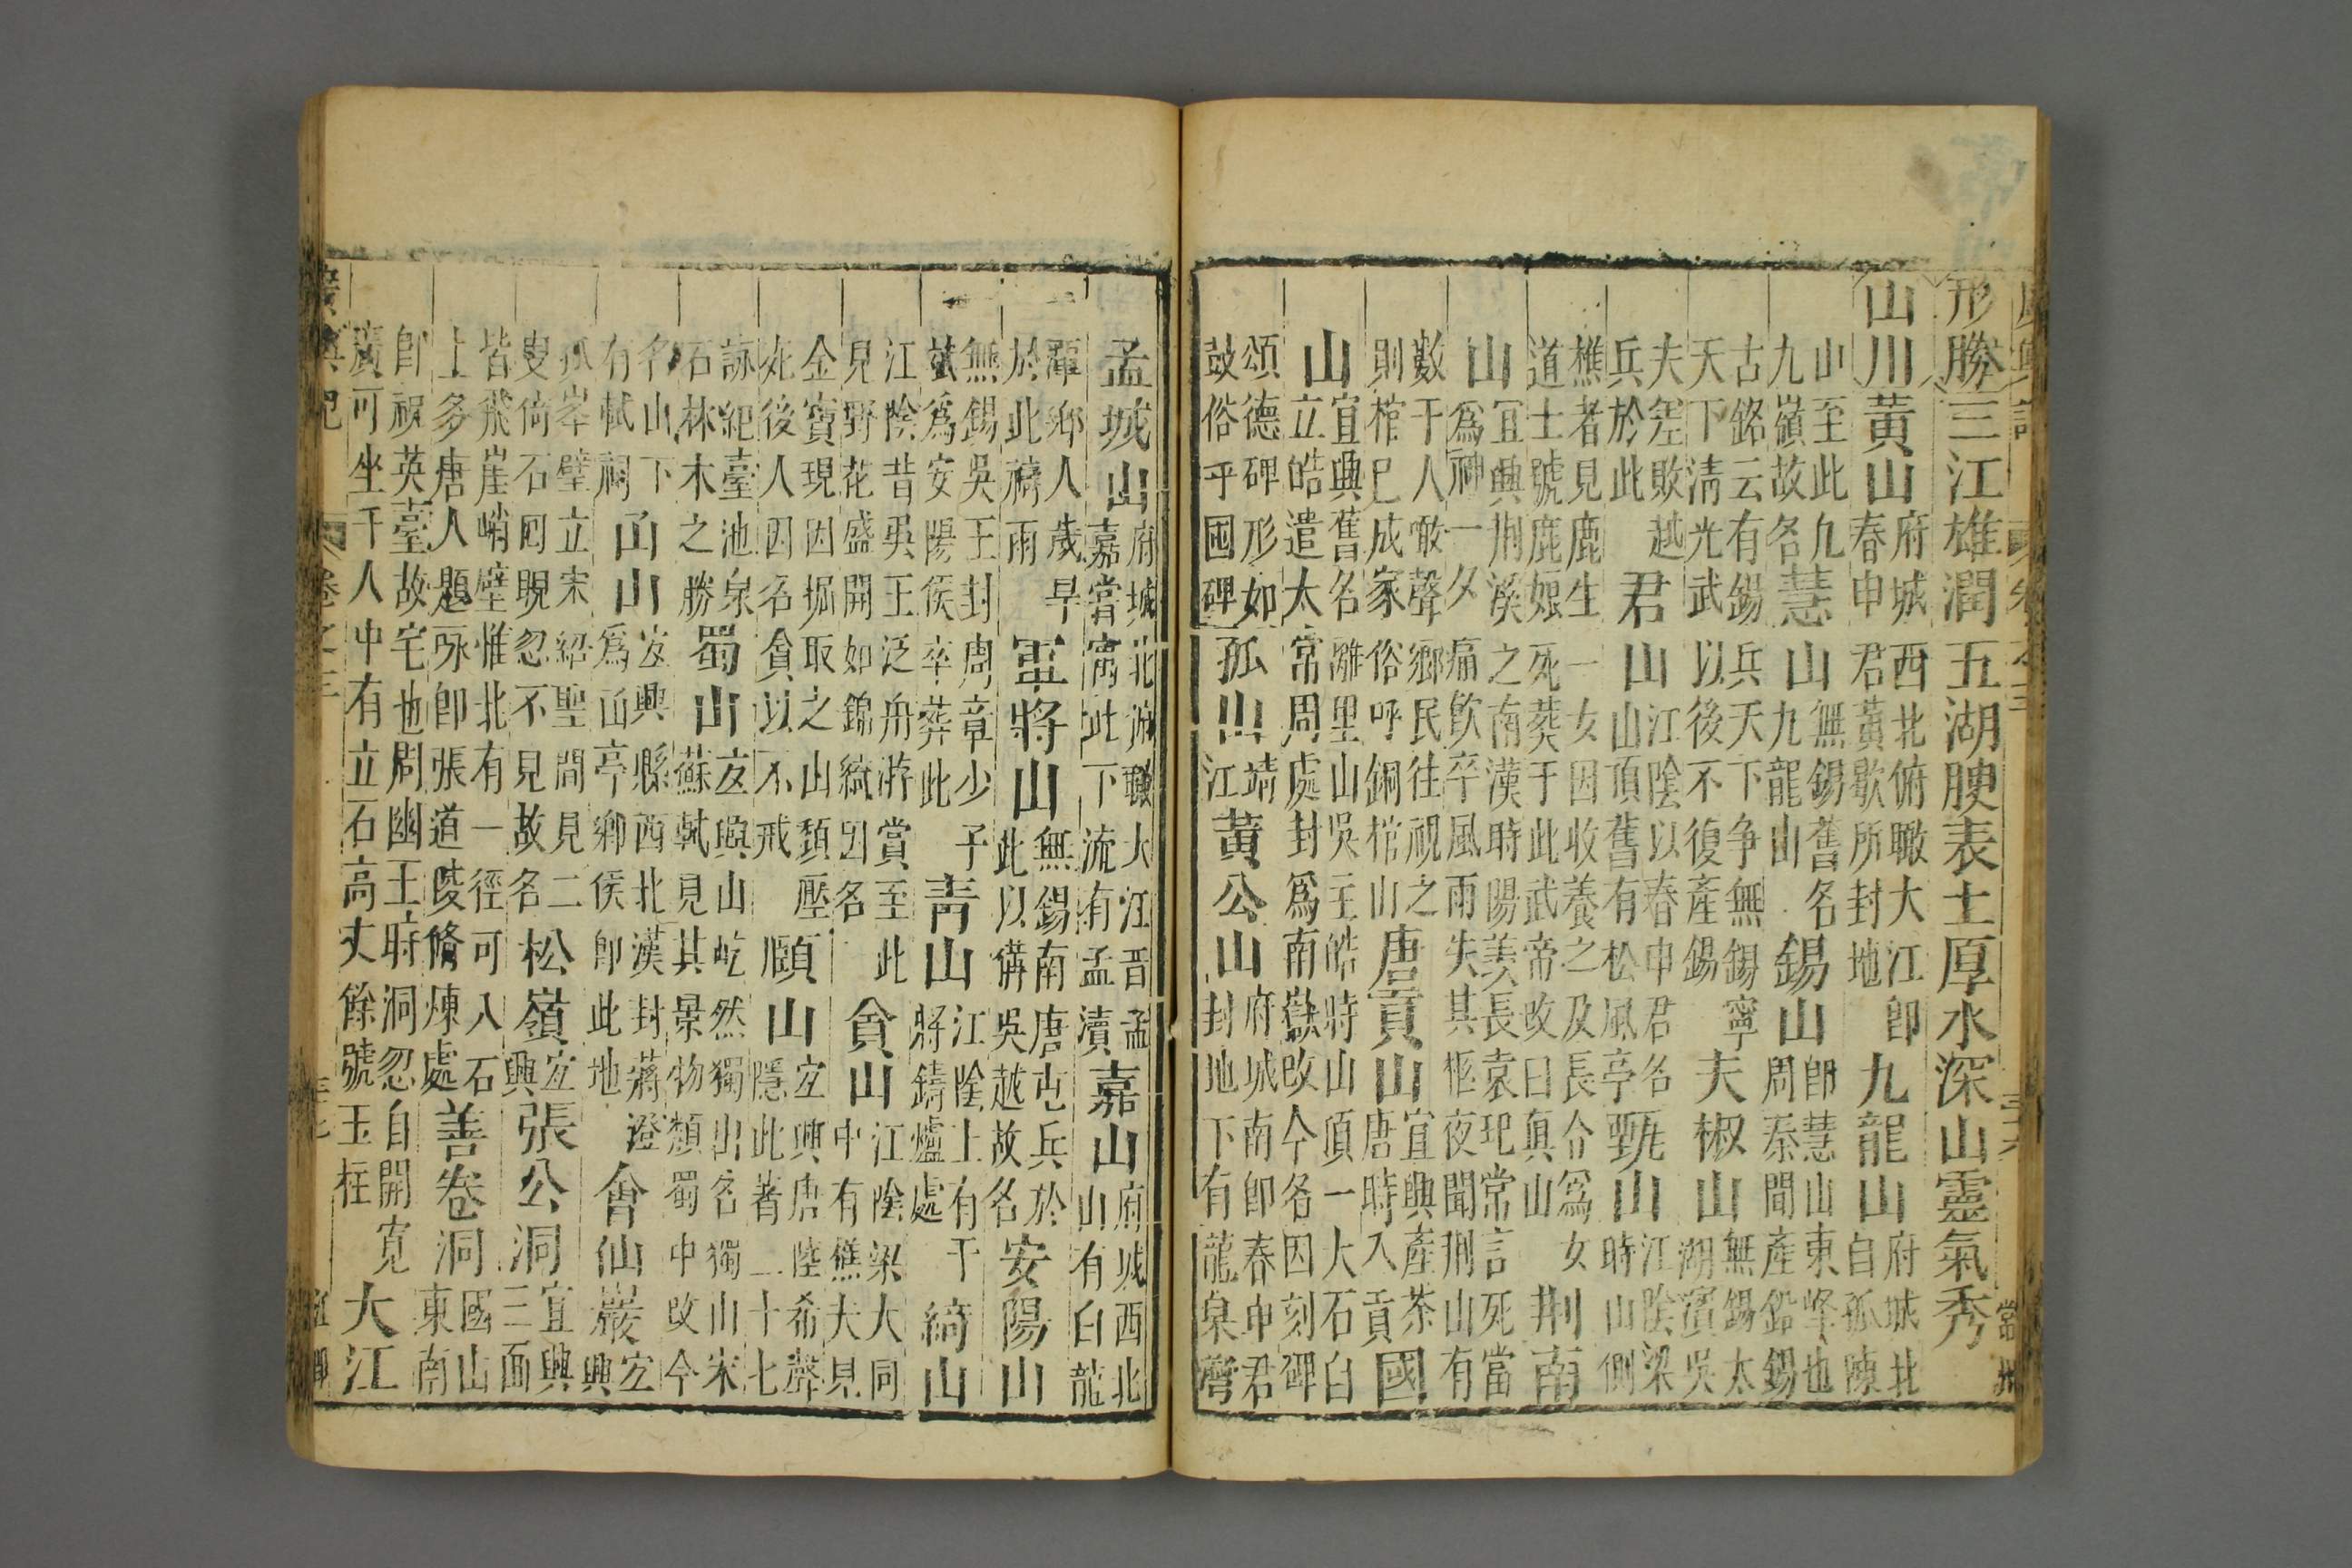 形勝三江雄潤五湖腴表土厚水深山靈氣秀
山川黃山府城西北俯瞰大江即春申君黃歇所封地九龍山府城北自孤陳
山至此凢九嶺故名慧山無錫舊名九龍山錫山即慧山東峰也周秦間產鉛錫
古銘云有錫兵天下争無錫寧天下清光武以後不復產錫夫椒山無錫太湖濱吳
夫差敗越兵於此君山江陰以春申君名山頂舊有松風亭甄山江陰梁時山側
樵者見鹿生一女因收養之及長令爲女道士號鹿娘死葬于此武帝改曰真山荆南
山宜興荆溪之南漢時陽羨長袁玘常言死當爲神一夕痛飲卒風雨失其柩夜聞荆山有
數千人噉聲鄉民往視之則棺已成冢俗呼銅棺山唐貢山宜興產茶唐時入貢國
山宜興舊名離里山吳主皓時山頂一大石自立皓遣太常周處封爲南嶽改今名因刻碑
頌德碑形如鼓俗乎國碑孤山靖江黃公山府城南即春申君封地下有龍泉嘗
孟城山府城北俯瞰大江晉孟嘉嘗寓此下流有孟瀆嘉山府城西北山有白龍
潭鄉人歲旱於此禱雨軍將山無錫南唐屯兵於此以備吳越故名安陽山
無錫吳王封周章少子爲安陽侯卒葬此青山江陰上有干將鑄爐處綺山
江陰昔吳王泛舟游賞至此見野花盛開如錦綺因名貪山江陰梁大同中有樵夫見
金寶現因掘取之山頽壓死後人因名貪以不戒頤山宜興唐陸希聲隱此著一十七
詠紀臺池泉石林木之勝蜀山宜興山屹然獨出名獨山宋蘇軾見其景物類蜀中改今
名山下有軾祠凾山宜興縣西北漢封蔣澄爲凾亭鄉侯即此地會仙巖宜興
孤峯壁立宋紹聖間見二叟倚石囬睨忽不見故名松嶺宜興張公洞宜興三面
皆飛崖峭壁惟北有一徑可入石上多唐人題咏即張道陵脩煉處善卷洞國山東南
即祝英臺故宅也周幽王時洞忽自開寛廣可坐千人中有立石高丈餘號玉柱大江